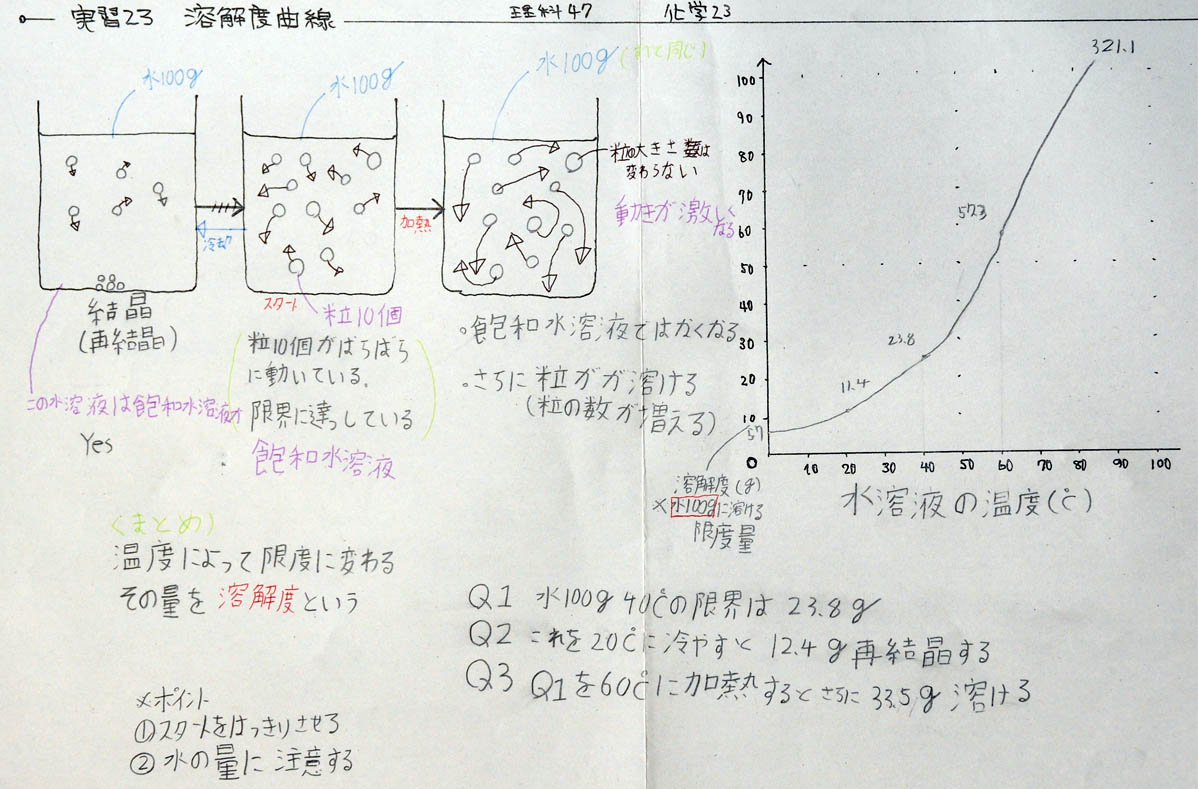 実習23 溶解度曲線
理科47
化学23
水100g
水100g
水100g (すべて同じ)
粒の大きさ 数は
変わらない
動きが激しく
なる
冷却
加熱
スタート
粒10個
結晶
(再結晶)
粒10個がばらばら
に動いている.
限界に達っしている
飽和水溶液
この水溶液は飽和水溶液か
Yes
。飽和水溶液ではなくなる
。さらに粒がが溶ける
(粒の数が増える)
321.1
100
90
80
70
60
50
40
30
20
10
0
57.3
23.8
11.4
5.7
10 20 30 40 50 60 70 80 90 100
水溶液の温度(℃)
溶解度(g)
※水100gに溶ける
限度量
<まとめ>
温度によって限度に変わる
その量を溶解度という
Q1 水100g 40℃の限界は 23.8g
Q2 これを20℃に冷やすと 12.4g再結晶する
Q3 Q1を60℃に加熱するとさらに33.5g溶ける
※ポイント
①スタートをはっきりさせろ
②水の量に注意する